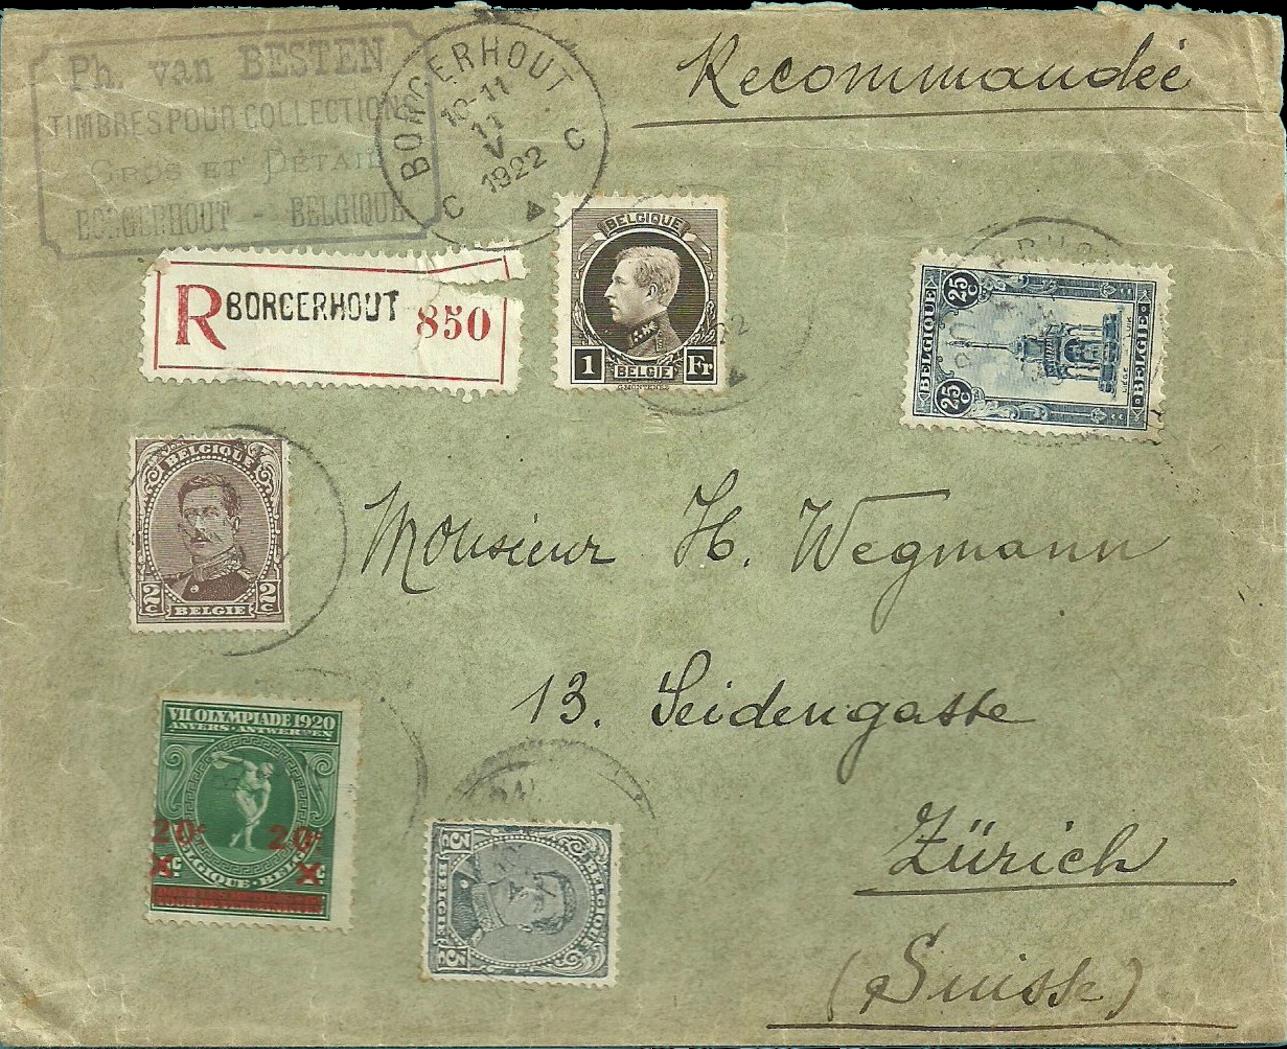 Ph. van BESTEN
TIMBRES POUR COLLECTIONS
GROS ET DÉTAIL
BORGERHOUT - BELGIQUE
BORGERHOUT
10-11
11
V
1922
C C
Recommandée
R BORGERHOUT 850
BELGIQUE
1 BELGIE Fr
G.MONTENEZ
BELGIQUE
25c
25c
LIÈGE LUIK
BELGIE
BELGIQUE
2c BELGIE 2c
Monsieur H. Wegmann
13. Seidengasse
Zürich
(Suisse)
VII OLYMPIADE 1920
ANVERS-ANTWERPEN
20c 20c
BELGIQUE-BELGIE
BELGIQUE
5c BELGIE 5c